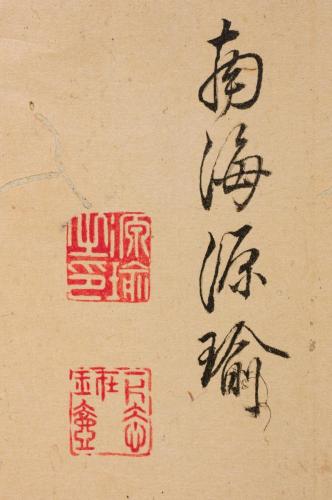 南海源瑜
源瑜
之印